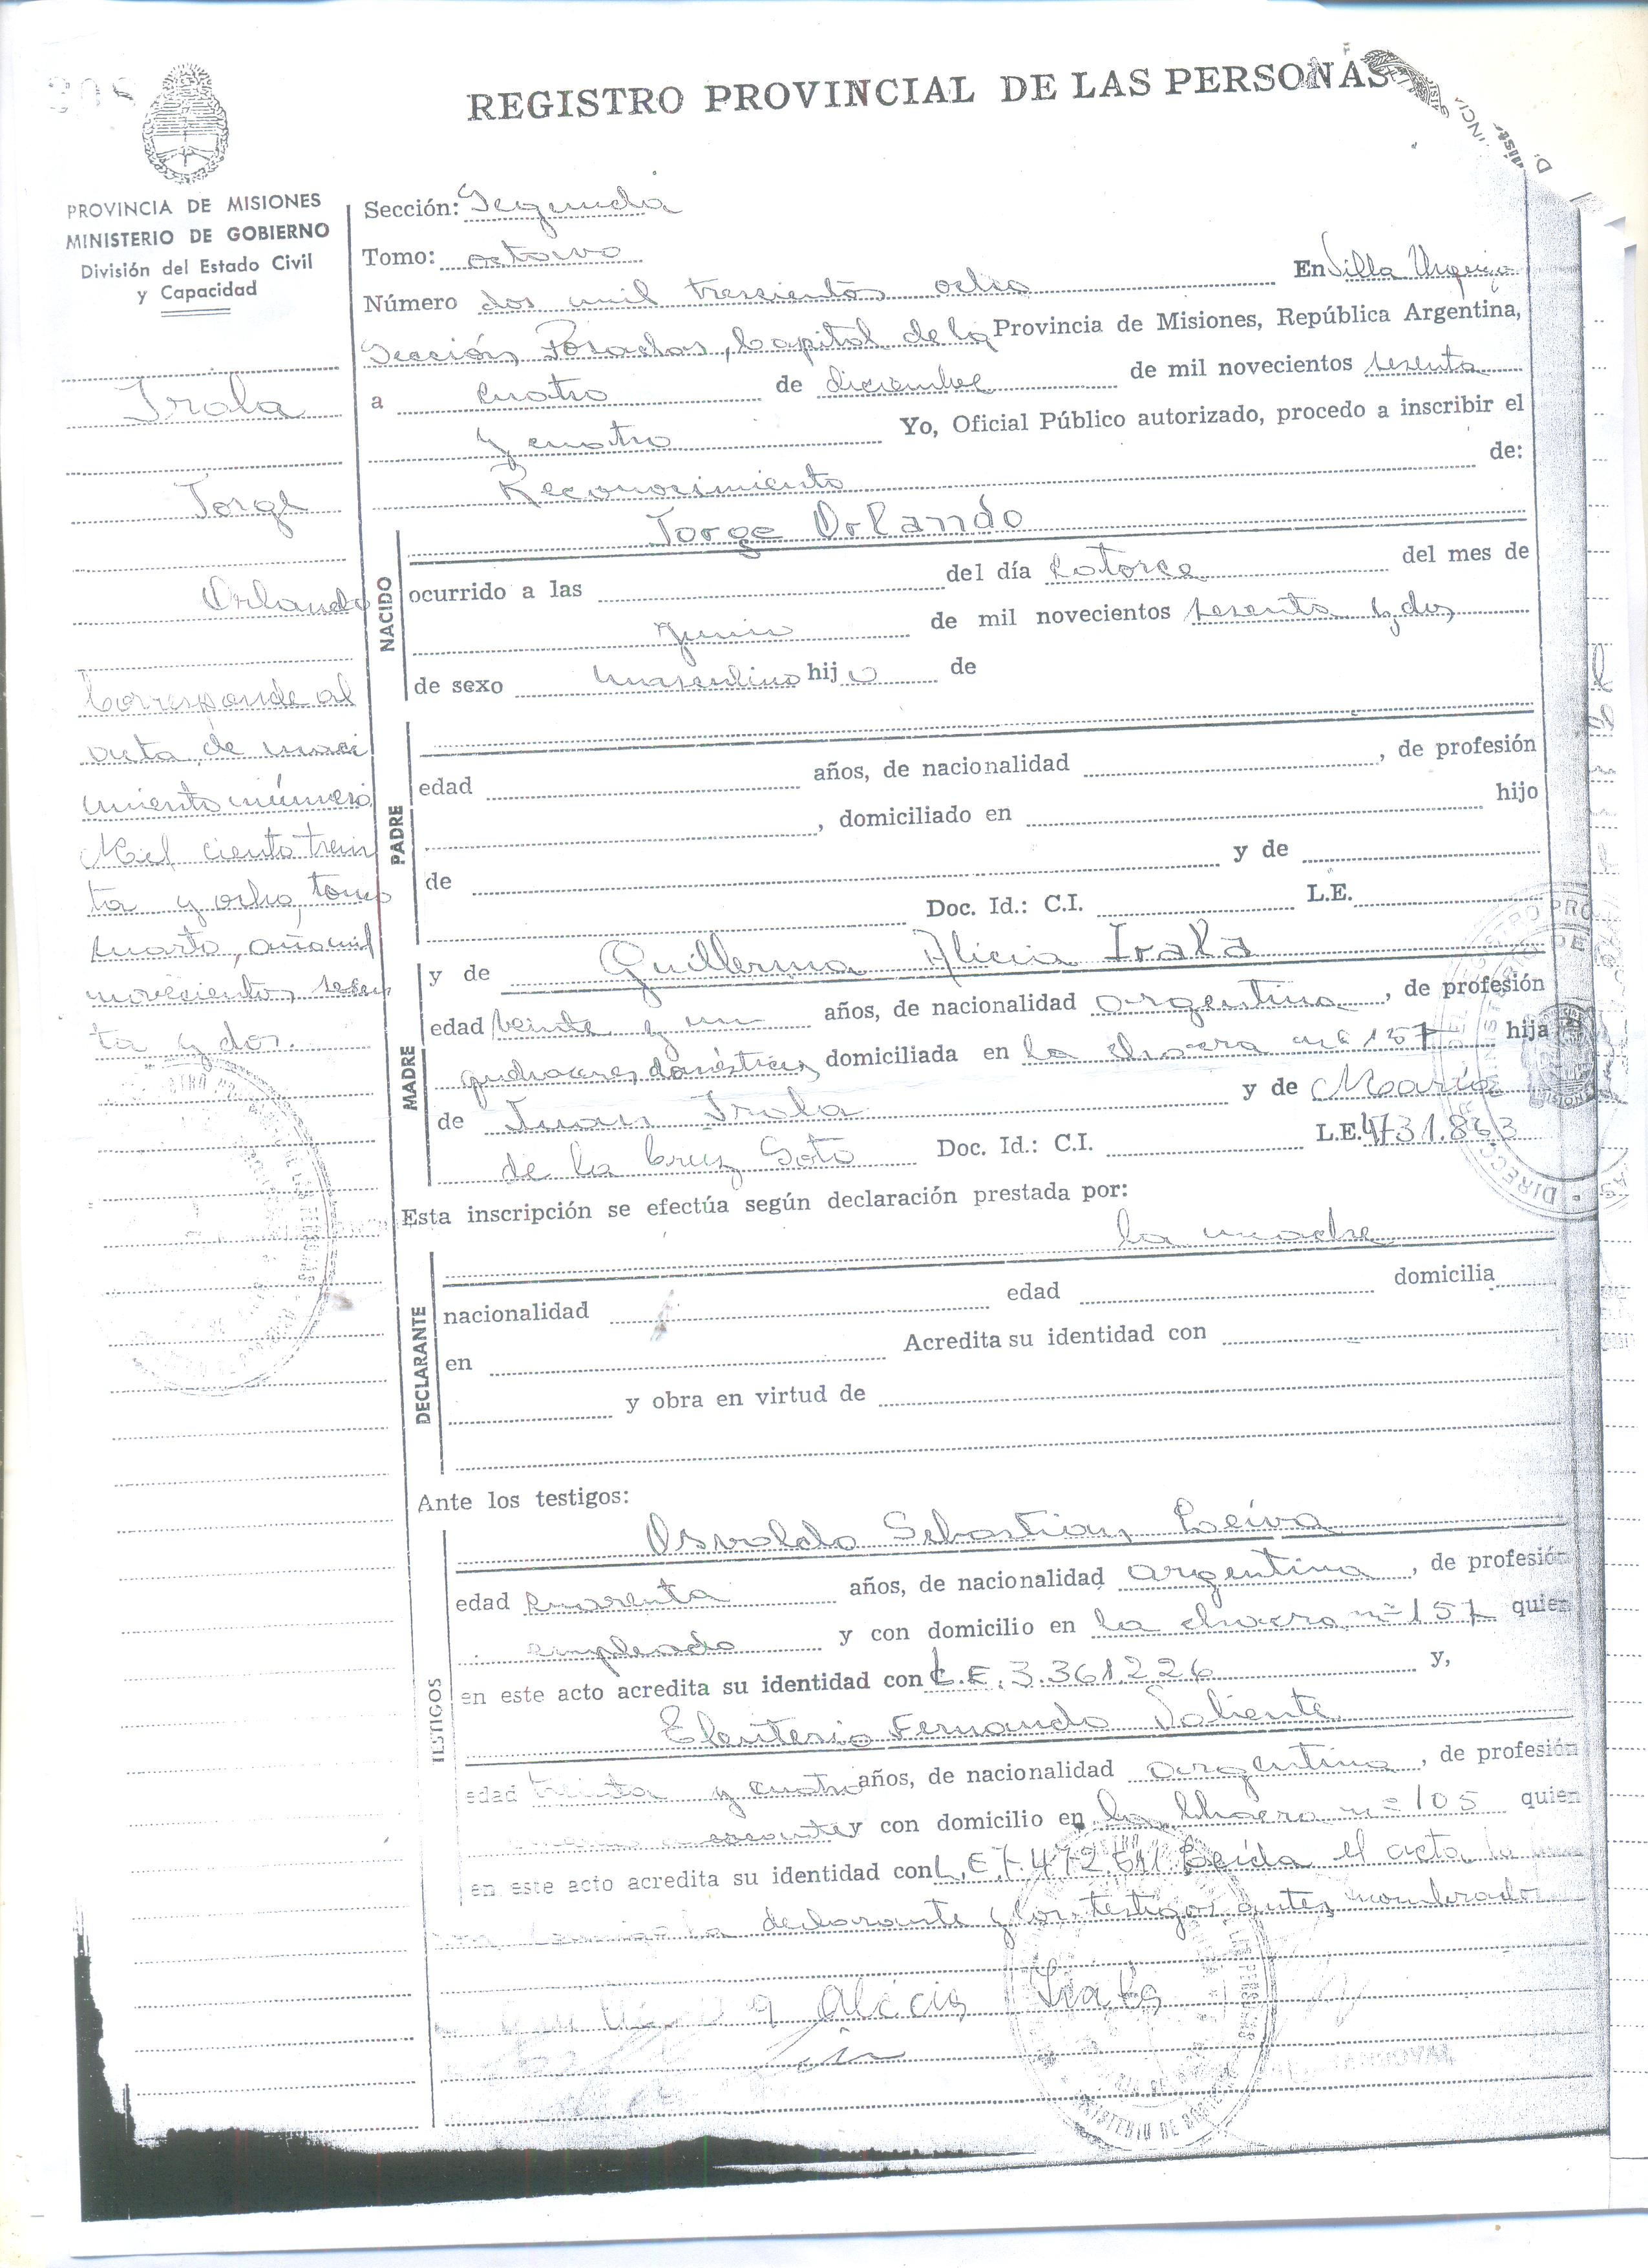 REGISTRO PROVINCIAL DE LAS PERSONAS
PROVINCIA DE MISIONES
MINISTERIO DE GOBIERNO
División del Estado Civil
y Capacidad
Irala
Jorge
Orlando
Corresponde al
acta de naci
miento número
Mil ciento trein
ta y ocho, tomo
cuarto, año mil
novecientos sesen
ta y dos.
Sección: Segunda
Tomo: octavo
Número dos mil trescientos ocho En Villa Urquiza
Sección Posadas, Capital de la Provincia de Misiones, República Argentina,
a cuatro de diciembre de mil novecientos sesenta
y cuatro Yo, Oficial Público autorizado, procedo a inscribir el
Reconocimiento de:
NACIDO
Jorge Orlando
ocurrido a las del día Catorce del mes de
Junio de mil novecientos sesenta y dos
de sexo masculino hijo de
PADRE
edad años, de nacionalidad , de profesión
, domiciliado en hijo
de y de
Doc. Id.: C.I. L.E.
MADRE
y de Guillerma Alicia Irala
edad veinte y un años, de nacionalidad argentina, de profesión
quehaceres domésticos domiciliada en la chacra nº 157 hija
de Juan Irala y de María
de la Cruz Soto Doc. Id.: C.I. L.E. 4731.863
Esta inscripción se efectúa según declaración prestada por:
la madre
DECLARANTE
nacionalidad edad domicilia
en Acredita su identidad con
y obra en virtud de
Ante los testigos:
TESTIGOS
Osvaldo Sebastian Leiva
edad cuarenta años, de nacionalidad argentina, de profesión
empleado y con domicilio en la chacra nº 157 quien
en este acto acredita su identidad con L.E. 3.361.226 y,
Eleuterio Fernando Valiente
edad treinta y cuatro años, de nacionalidad argentina, de profesión
y con domicilio en la chacra nº 105 quien
en este acto acredita su identidad con L.E. 7.472.611 Leída el acta la
declarante y los testigos antes nombrados
Alicia Irala